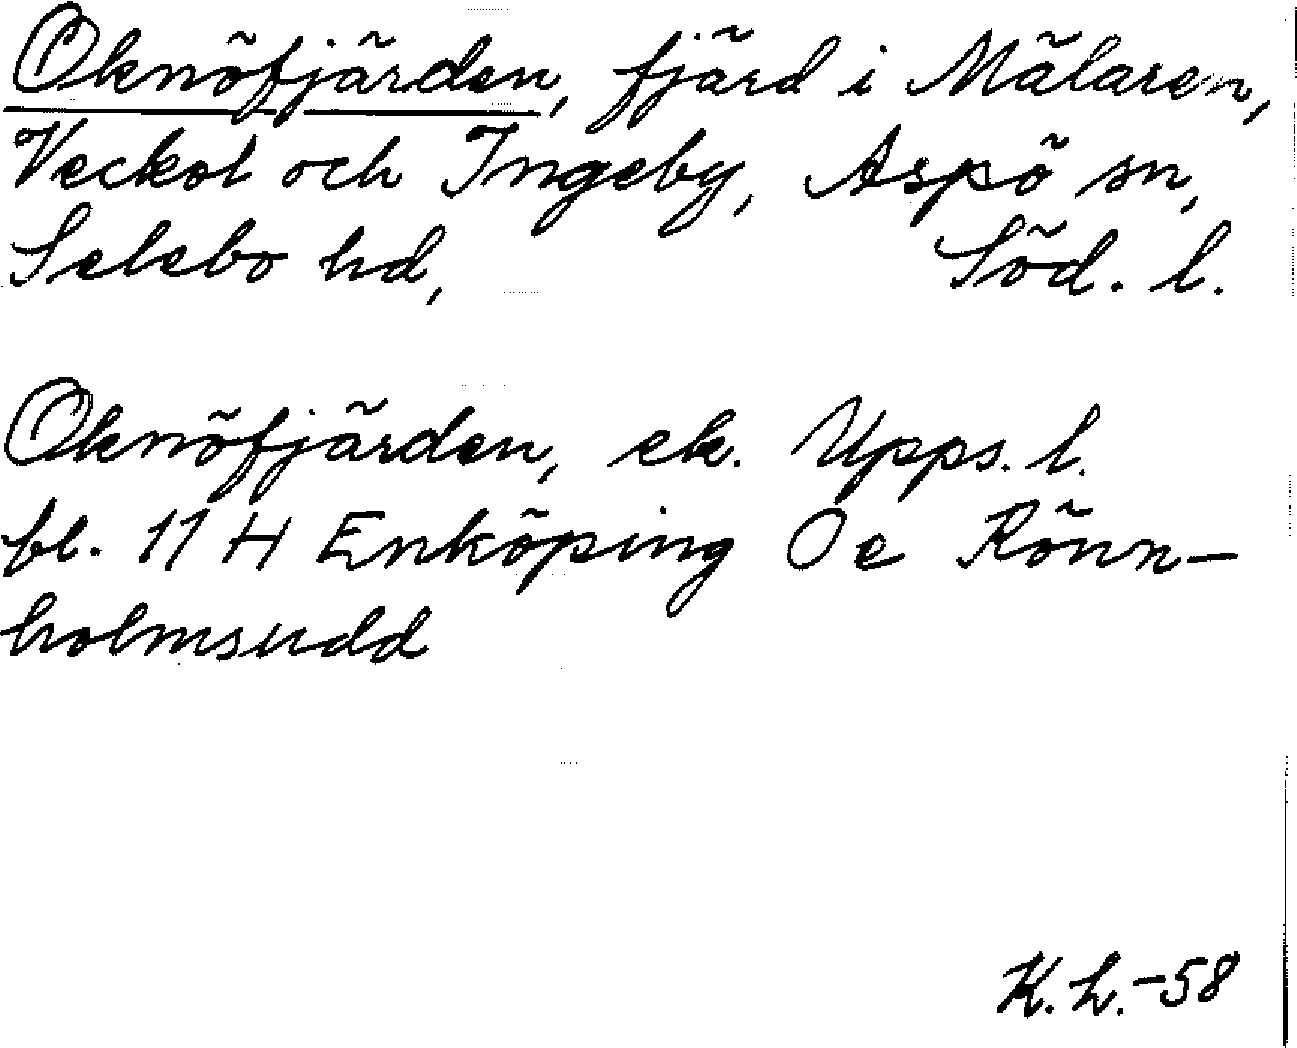 Oknöfjärden, fjärd i Mälaren,
Veckol och Ingeby, Aspö sn,
Selebo hd, Söd. l.
Oknöfjärden, ek. Upps. l.
bl. 11 H Enköping O e Rönn-
holmsudd
K.h.-58